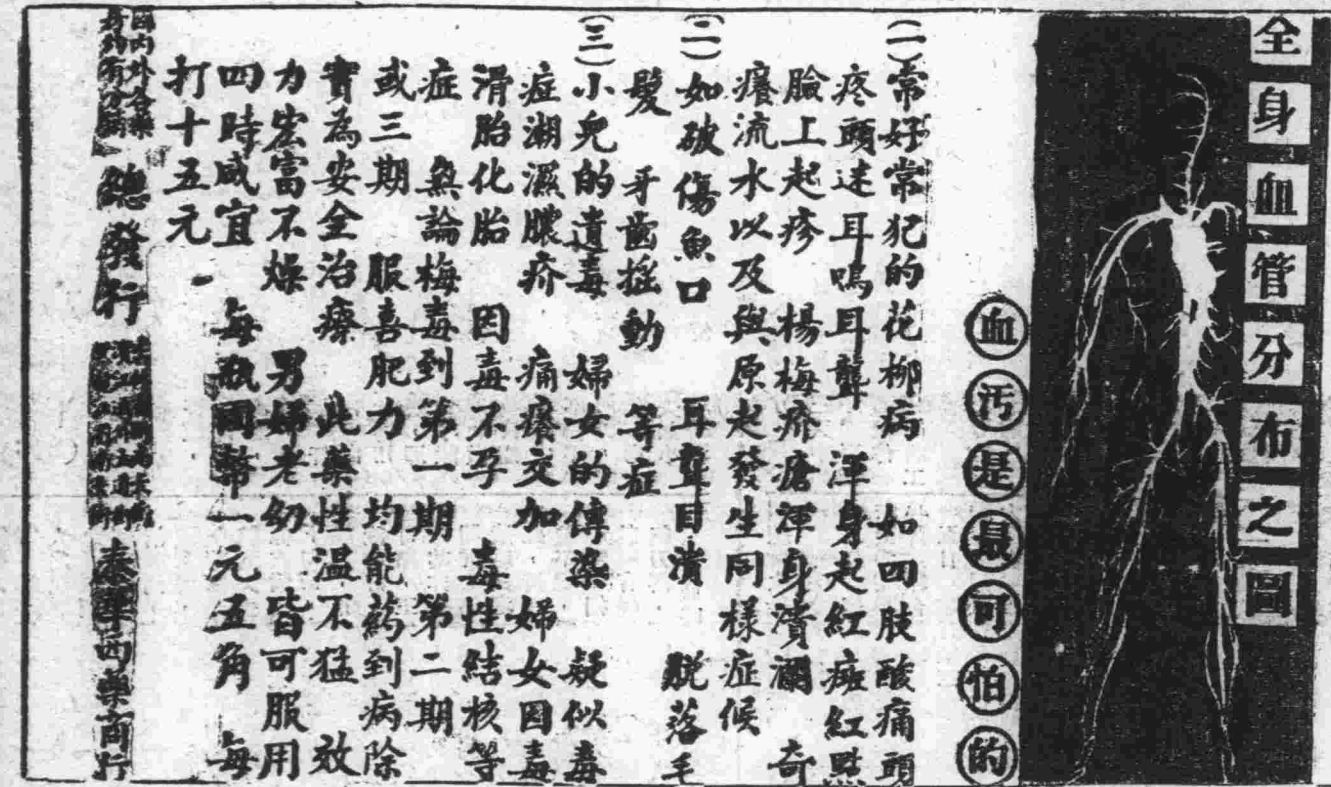 全身血管分布之圖
血汚是最可怕的
(一)常好常犯的花柳病　如四肢酸痛頭
疼頭迷耳鳴耳聾　渾身起紅斑紅點
臉上起疹　楊梅疥瘡渾身潰瀾　奇
癢流水以及與原起發生同樣症候
(二)如破傷魚口　耳聾目潰　脱落毛
髮　牙齒搖動　等症
(三)小兒的遺毒　婦女的傳染　疑似毒
症潮濕膿疥　痛癢交加　婦女因毒
滑胎化胎　因毒不孕　毒性結核等
症　無論梅毒到第一期　第二期
或三期　服喜肥力　均能葯到病除
實為安全治療　此藥性温不猛　效
力宏富不燥　男婦老幼　皆可服用
四時咸宜　每瓶國幣一元五角　每
打十五元
總發行
泰華西藥商行